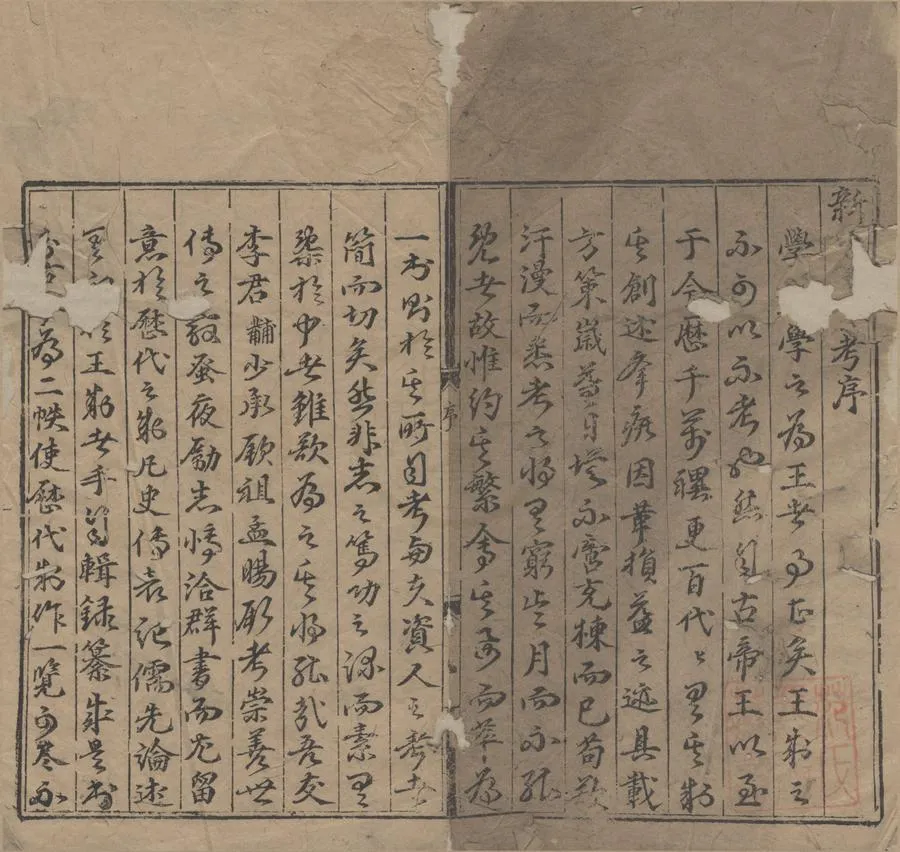 新考序
學學之為王者事矣王制之
不可以不考也然自古帝王以至
于今歷千萬禩更百代〻異其制
其創述因革損益之迹具載
方策歲增不啻充棟而已苟欲
汗漫而悉考之將窮月而不能
既者故惟約其繁會其要而萃為
一書則於其所自考與夫資人之考者
簡而切矣然非志之篤功之深而素
於中者雖欲為之其將能哉吾友
李君黼少承厥祖孟暘考崇善世
傳之教蚤夜勵志博洽群書而尤留
意於歷代之制凡史傳表記儒先論述
以王制者手自輯錄纂成是書
為二帙使歷代制作一覽可盡而
序